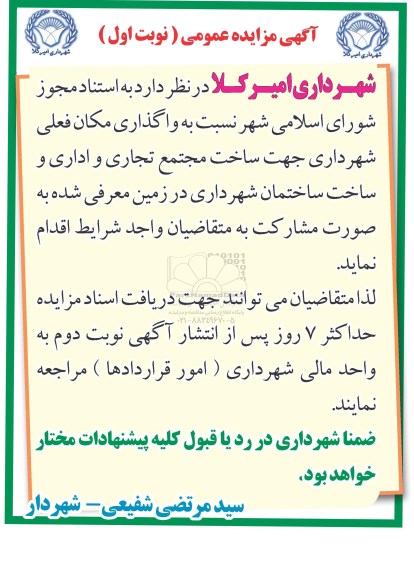 آگهی مزایده عمومی ( نوبت اول )
شهرداری امیرکلا
شهرداری امیرکلا
شهـرداری امیـرکـلا در نظر دارد به استناد مجوز
شورای اسلامی شهر نسبت به واگذاری مکان فعلی
شهرداری جهت ساخت مجتمع تجاری و اداری و
ساخت ساختمان شهرداری در زمین معرفی شده به
صورت مشارکت به متقاضیان واجد شرایط اقدام
نماید.
لذا متقاضیان می توانند جهت دریافت اسناد مزایده
حداکثر ۷ روز پس از انتشار آگهی نوبت دوم به
واحد مالی شهرداری ( امور قراردادها ) مراجعه
نمایند.
ضمنا شهرداری در رد یا قبول کلیه پیشنهادات مختار
خواهد بود.
سید مرتضی شفیعی – شهردار
پایگاه اطلاع رسانی مناقصه و مزایده
۰۲۱-۸۸۳۴۹۶۷۰-۵